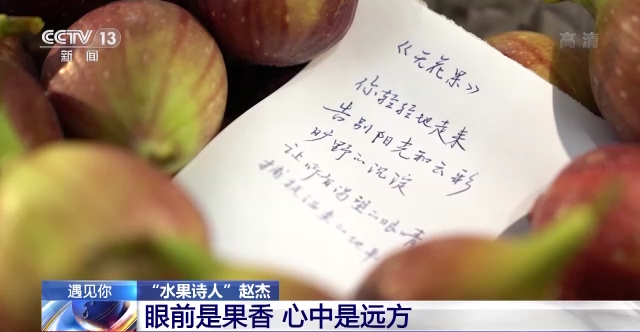 CCTV 13
新闻
高清
《无花果》
你轻轻地走来
告别阳光和云彩
旷野的沉淀
让所有
眼
遇见你
“水果诗人”赵杰
眼前是果香 心中是远方